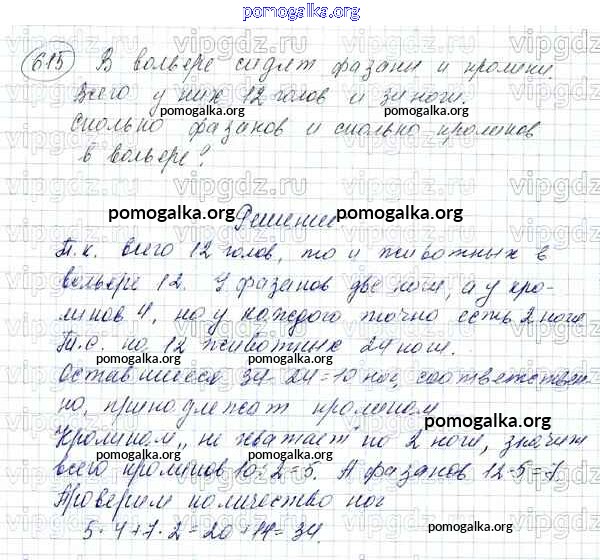 pomogalka.org
615 В вольере сидят фазаны и кролики.
Всего у них 12 голов и 34 ноги.
pomogalka.org
Сколько фазанов и сколько кроликов
в вольере?
pomogalka.org
Решение
Т.к. всего 12 голов, то и животных в
вольере 12. У фазанов две ноги, а у кро-
ликов 4, но у каждого точно есть 2 ноги
Т.е. на 12 животных 24 ноги.
pomogalka.org pomogalka.org
Оставшиеся 34-24=10 ног, соответствен
но, принадлежат кроликам
pomogalka.org
"Кроликам" не хватает по 2 ноги, значит
всего кроликов 10:2=5. А фазанов 12-5=7.
Проверим количество ног
pomogalka.org
5·4+7·2=20+14=34.
pomogalka.org